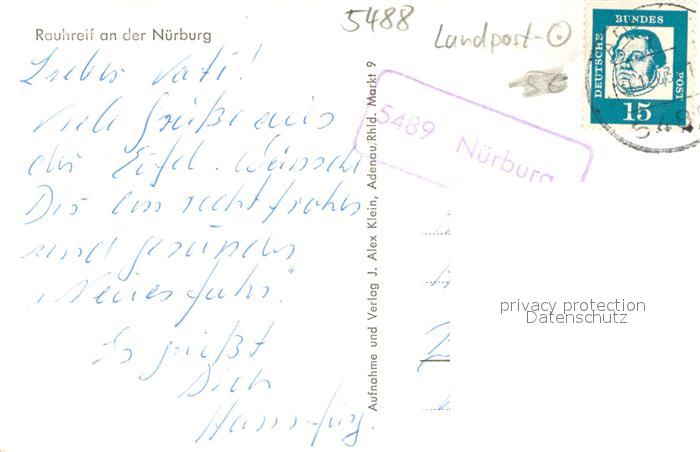 Rauhreif an der Nürburg
Lieber Vati!
Viele Grüße aus
der Eifel. Wünsche
Dir ein recht frohes
und gesundes
"Neues Jahr".
Es grüßt
Dich
Hans-Jürg.
Aufnahme und Verlag J. Alex Klein, Adenau/Rhld. Markt 9
5488
Landpost-
5489 Nürburg
DEUTSCHE
BUNDES
POST
15
privacy protection
Datenschutz